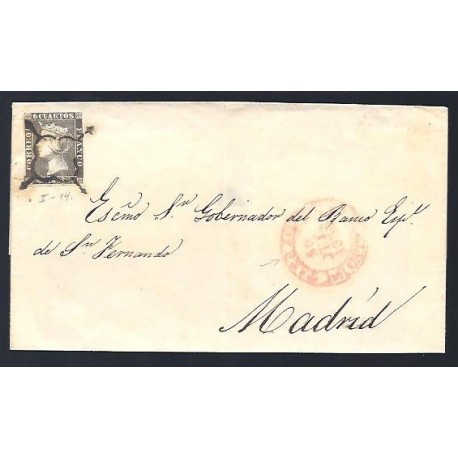 6 CUARTOS
CORREOS FRANCO
I-14.
Escmo Sr Gobernador del Banco Espl.
de Sn Fernando
Madrid